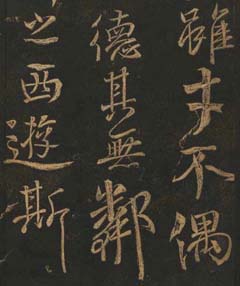 雖才不偶
德其無鄰
之西遊斯